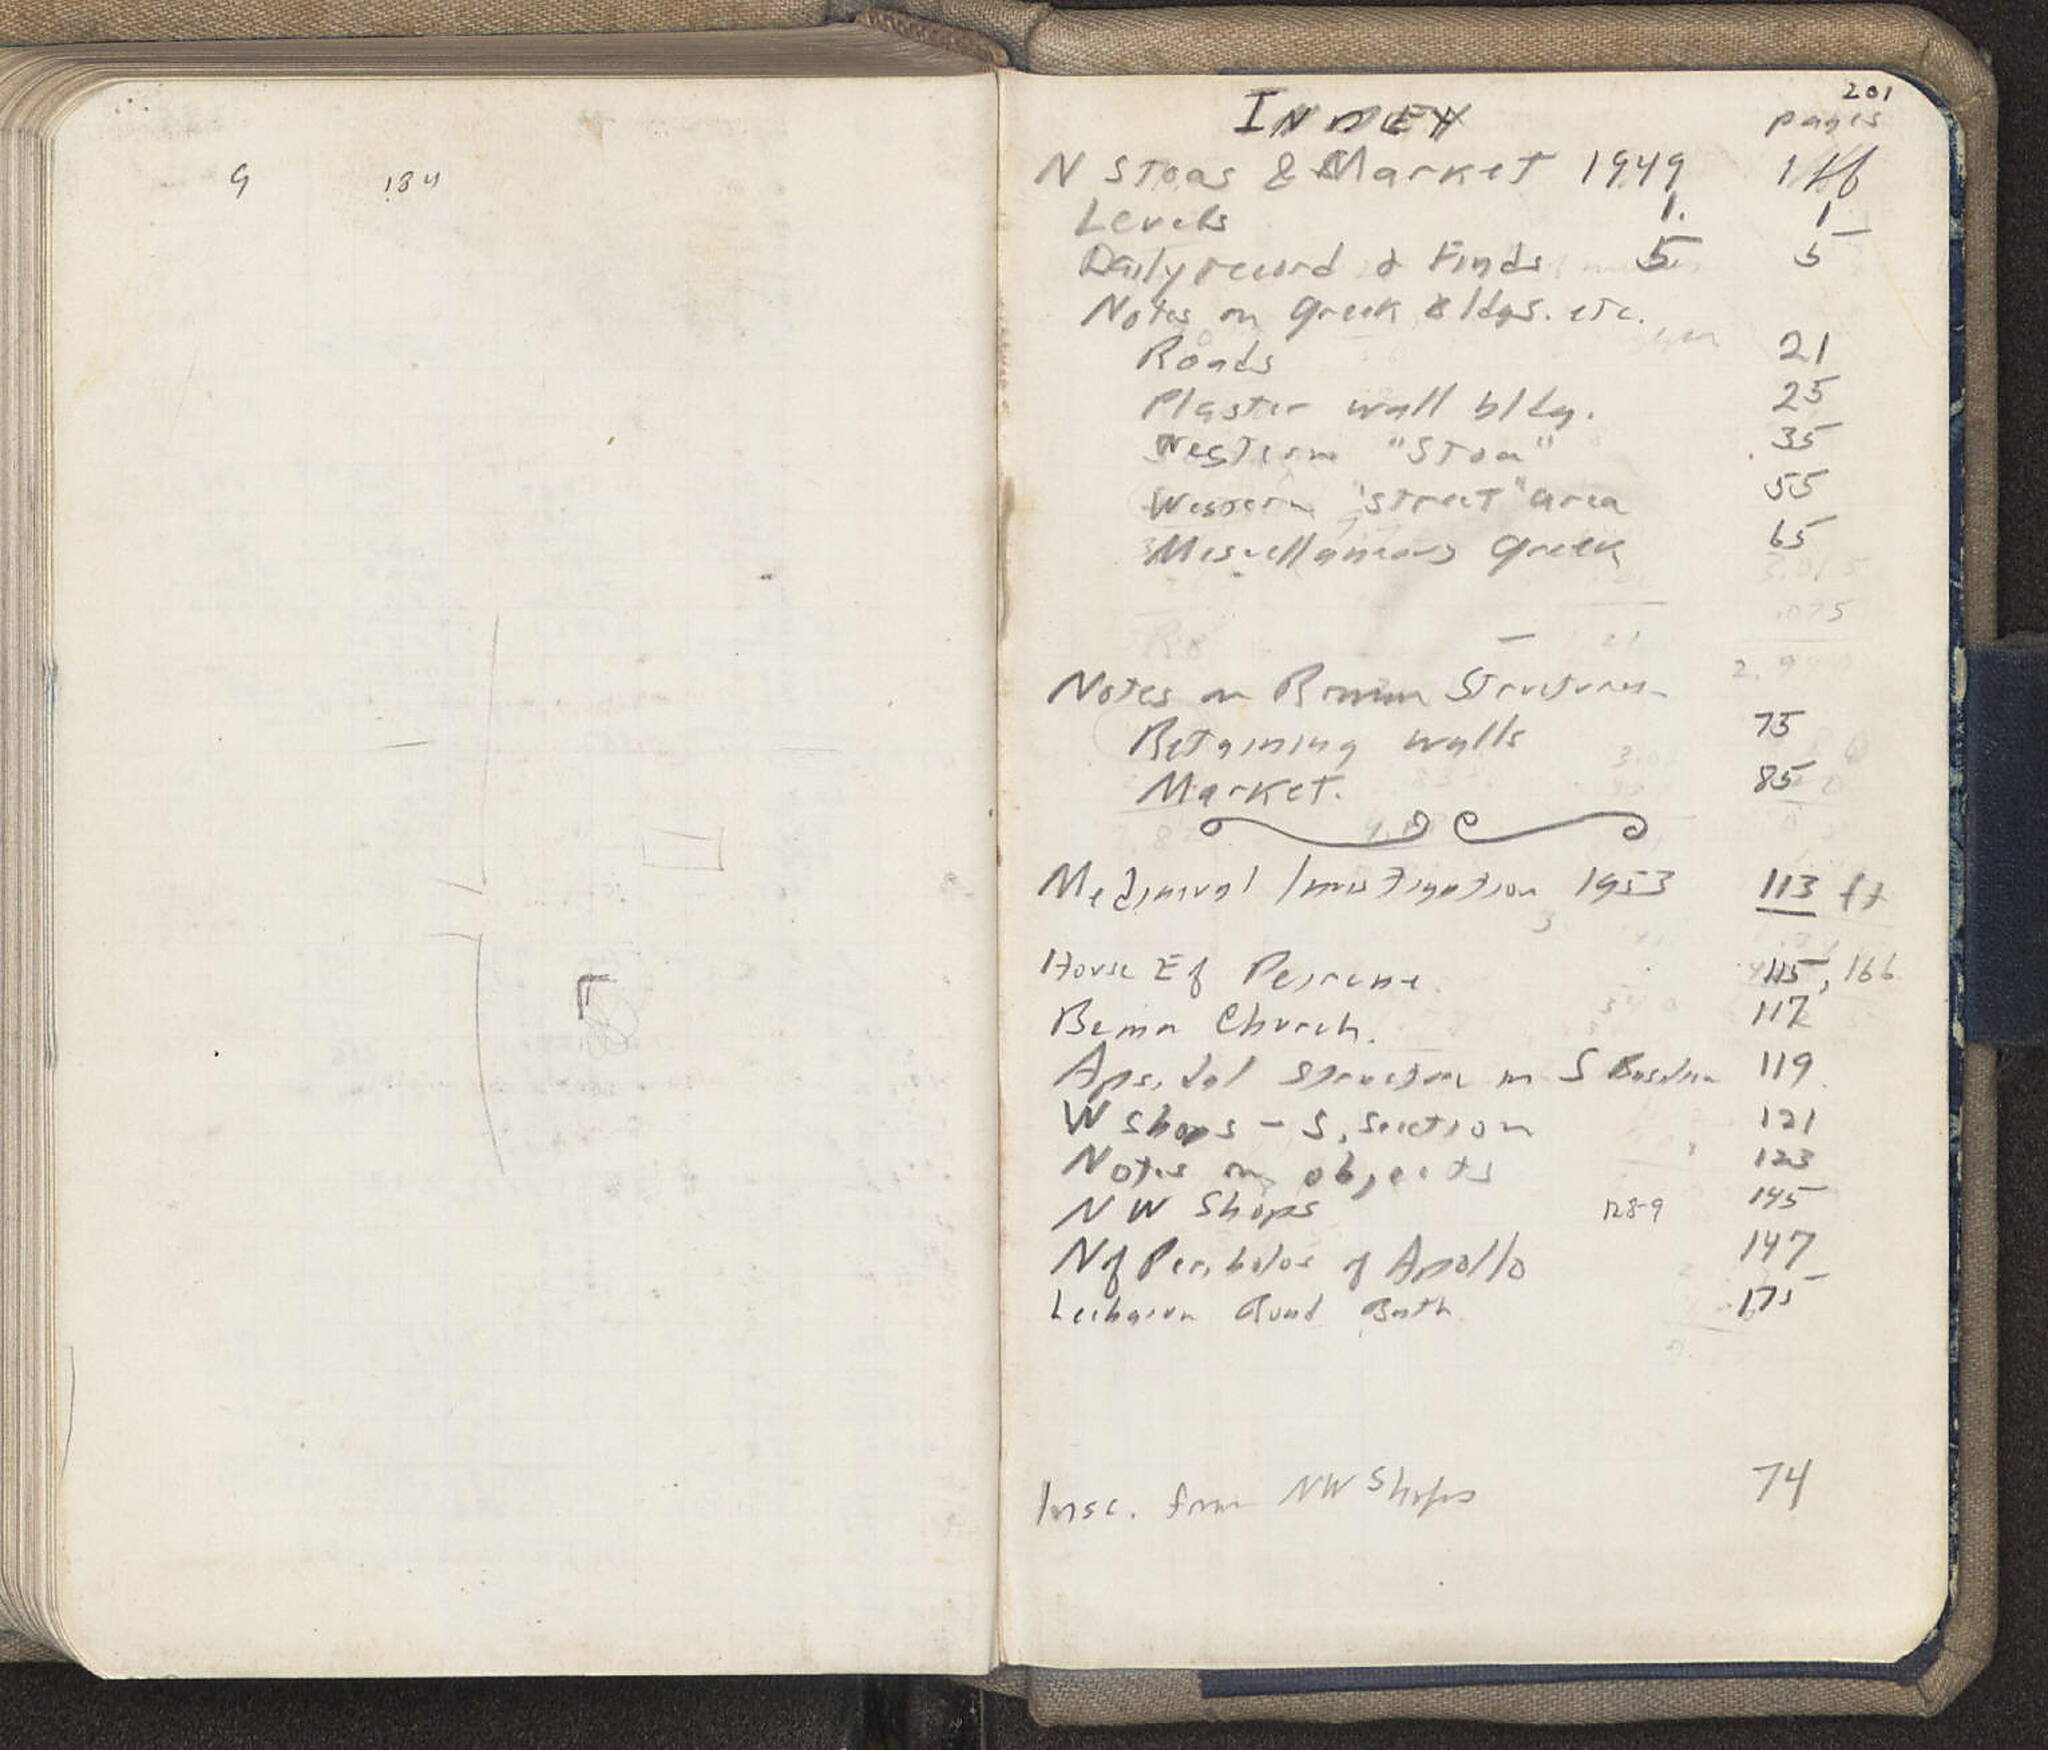 9 184
201
INDEX pages
N Stoas & Market 1949 1 ff
Levels 1. 1
Daily record & Finds 5 5
Notes on Greek bldgs. etc.
Roads 21
Plaster wall bldg. 25
Western "Stoa" 35
Western "street" area 55
Miscellaneous Greek 65
Notes on Roman Structures
Retaining walls 75
Market. 85
Mediaeval Investigation 1953 113 ff
House E of Peirene 115, 166
Bema Church. 117
Apsidal structure in S Basilica 119
W Shops - S. section 121
Notes on objects 123
NW Shops 128-9 145
N of Peribolos of Apollo 147
Lechaion Road Bath 175
Insc. from NW Shops 74